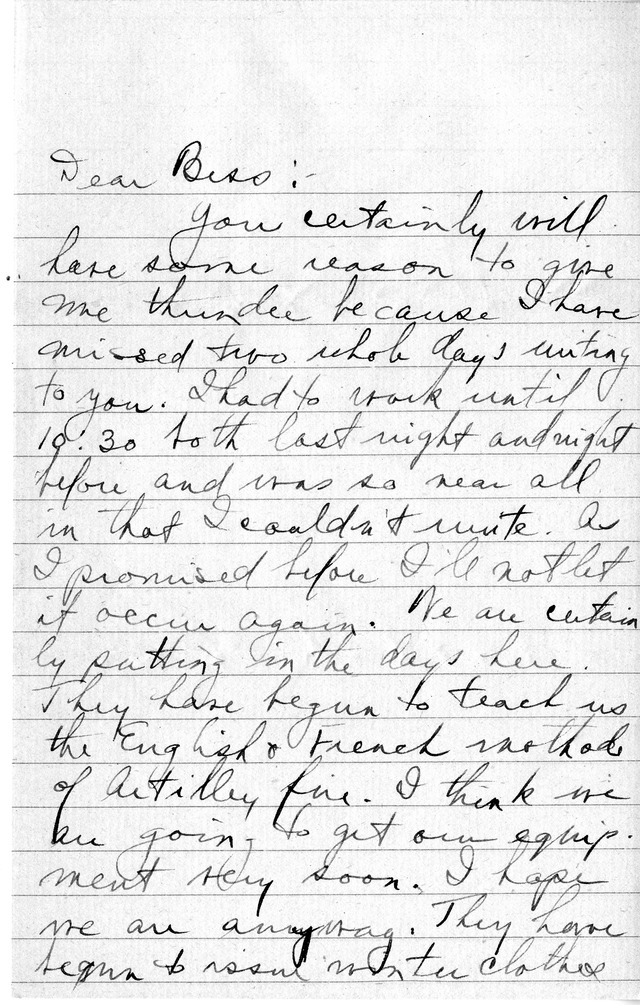 Dear Bess:-
You certainly will
have some reason to give
me thunder because I have
missed two whole days writing
to you. I had to work until
10:30 both last night and night
before and was so near all
in that I couldn't write. As
I promised before I'll not let
it occur again. We are certain
ly putting in the days here.
They have begun to teach us
the English & French methods
of Artillery fire. I think we
are going to get our equip-
ment very soon. I hope
we are anyway. They have
begun to issue winter clothes